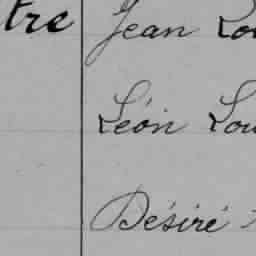 tre Jean Lou
Léon Lou
Désiré